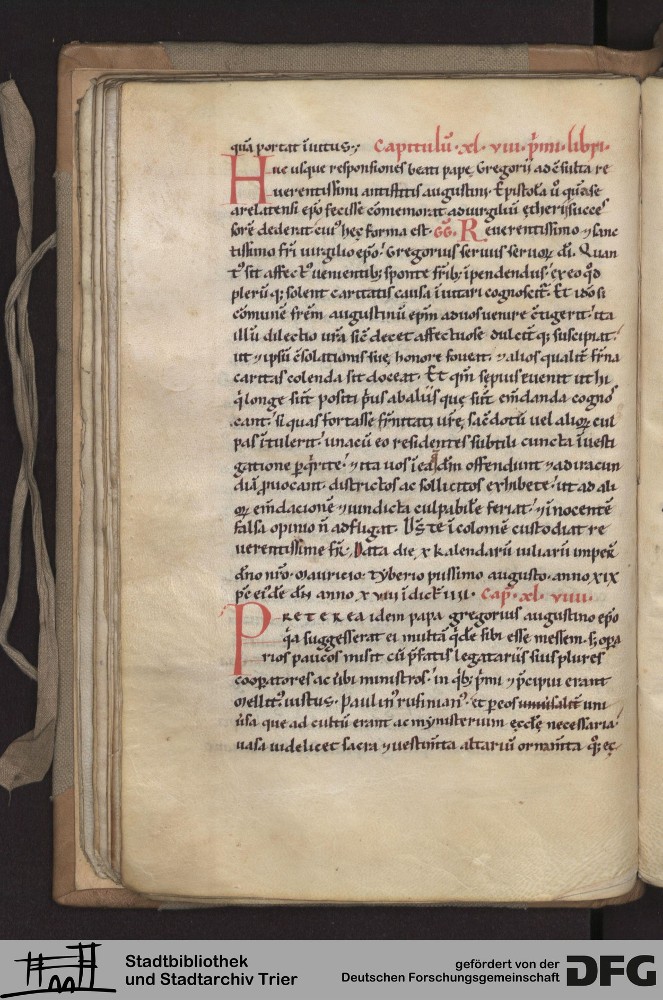 quā portat īvitus·,· Capitulū·xl·viii·p̄mi·libri·
Huc usque responsiones beati pape Gregorij ad c̄sulta re
uerentissimi antistitis augustini· Epistola ū quā se
arelatensi ep̄o fecisse cōmemorat ad uirgiliū ętherij succes
sorē dederat cui᾽ hęc forma est· GG· Reuerentissimo ⁊ sanc
tissimo fr̄i uirgilio ep̄o· Gregorius seruus seruoꝝ dī. Quan
t᾽ sit affect᾽ uenientib; sponte fr̄ib; īpendendus· ex eo qd̄
plerū q; solent caritatis causa īuitari cognoscit̄. Et idō si
cōmunē frēm augustinū ep̄m ad uos uenire c̄tigerit· ita
illū dilectio ur̄a sic̄ decet affectuose dulcit̄ q; suscipiat·
ut ⁊ ipsū c̄solationis sue honore foueat· ⁊ alios qualit̄ fr̄na
caritas colenda sit doceat. Et qm̄ sepius euenit ut hi
q̄ longe sūt positi p̄us ab aliis que sūt em̄danda cognos
cant· si quas fortasse fr̄nitati ur̄e, sac̄dotū uel alioꝝ cul
pas ītulerit· una cū eo residentes subtili cuncta īuesti
gatione pq̄rite· ⁊ ita uos ī ea q̄ dm̄ offendunt ⁊ ad iracun
diā ꝓuocant· districtos ac sollicitos exhibete· ut ad ali
oꝝ em̄dacionē ⁊ uindicta culpabilē feriat· ⁊ īnocentē
falsa opinio n̄ adfligat. D̄s te īcolomē custodiat re
uerentissime fr̄· Data die, x kalendarū iuliarū imper̄
dn̄o nr̄o· Mauricio· Tyberio piissimo augusto· anno xix
p᾽ c̄ ei᾽de dn̄i anno, x viii īdict̄ iiii· Cap̄·xl·viiii·
PRETEREA idem papa gregorius augustino ep̄o
q̄a suggesserat ei multā q̄dē sibi esse messem· s; opa
rios paucos misit cū p̄fatis legatariis suis plures
cooꝑatores ac ūbi ministros· in q̄b; p̄mi ⁊ p̄cipui erant
Mellit᾽· iustus· Paulin᾽ rufinian᾽· et p eos ual̄it̄ uni
ūsa que ad cultū erant ac mynisterium ęcclę necessaria·
uasa uidelicet sacra ⁊ uestim̄ta altariū ornam̄ta q; ęc
Stadtbibliothek
und Stadtarchiv Trier
gefördert von der
Deutschen Forschungsgemeinschaft DFG